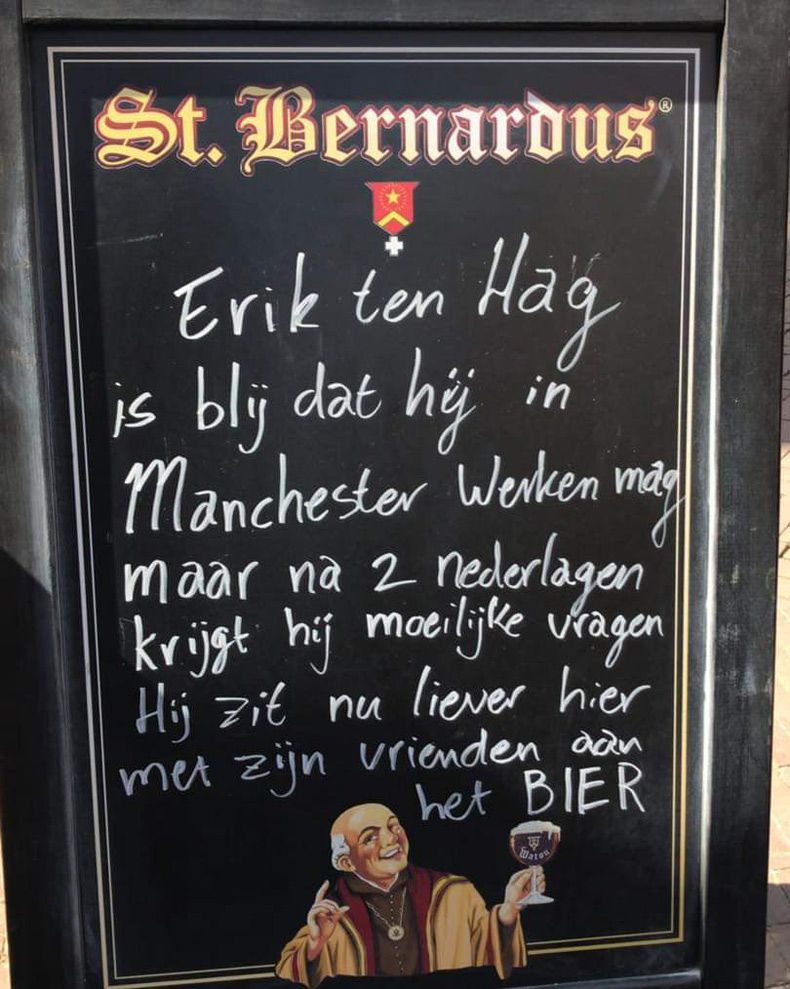 St. Bernardus®
Erik ten Hag
is blij dat hij in
Manchester Werken mag
maar na 2 nederlagen
krijgt hij moeilijke vragen
Hij zit nu liever hier
met zijn vrienden aan
het BIER
Watou